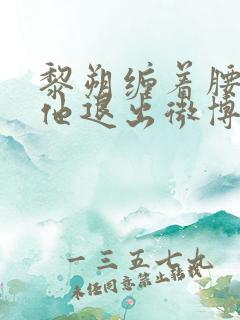 黎朔缠着腰
他退出微博
一三五七九
未经同意禁止转载